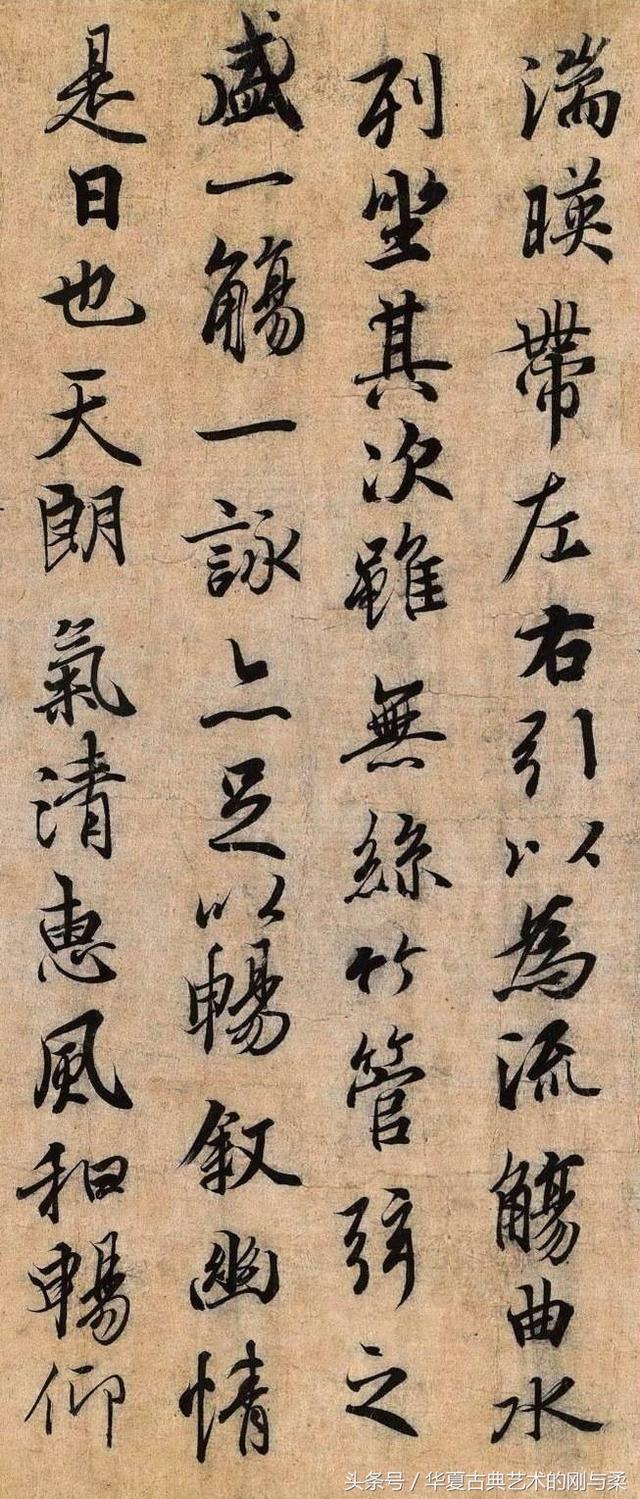 湍暎帶左右引以為流觴曲水
列坐其次雖無絲竹管弦之
盛一觴一詠亦足以暢叙幽情
是日也天朗氣清惠風和暢仰
头条号／华夏古典艺术的刚与柔